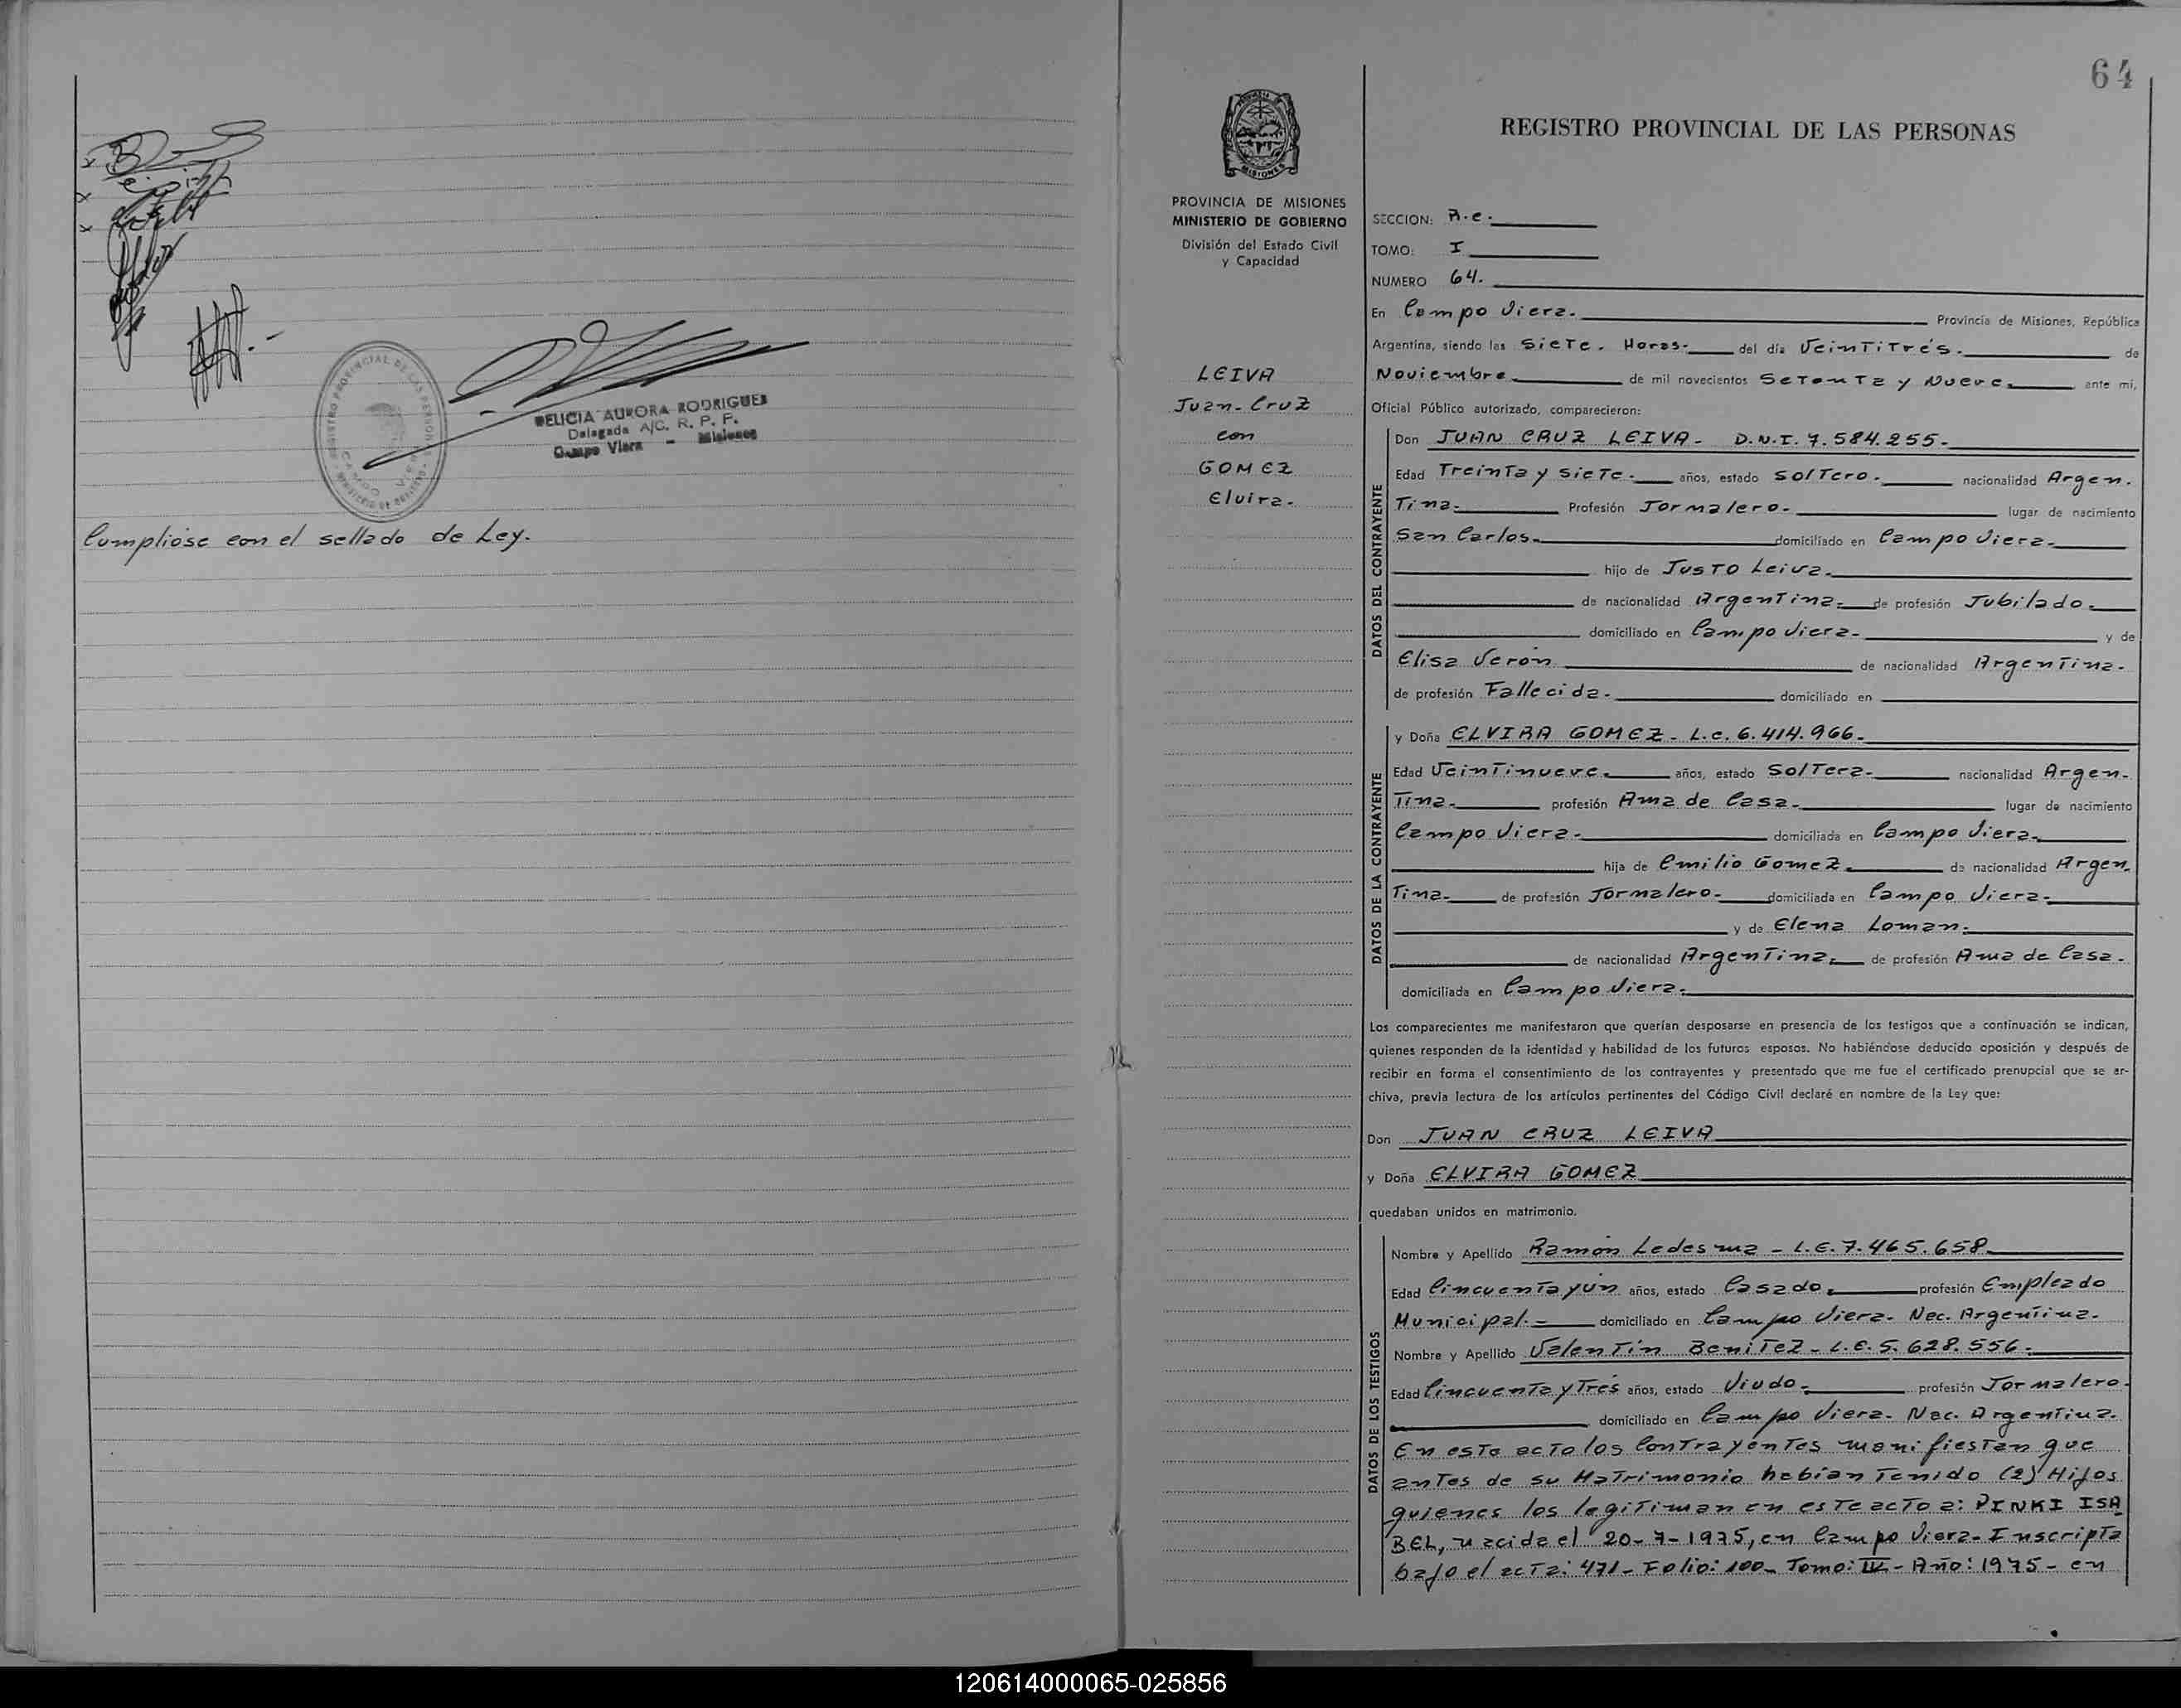 DELICIA AURORA RODRIGUEZ
Delegada A/C. R. P. P.
Campo Viera - Misiones
Cumpliose con el sellado de Ley.
64
REGISTRO PROVINCIAL DE LAS PERSONAS
MISIONES
PROVINCIA DE MISIONES
MINISTERIO DE GOBIERNO
División del Estado Civil
y Capacidad
LEIVA
Juan-Cruz
con
GOMEZ
Elvira.
SECCION: A.c.
TOMO: I
NUMERO 64.
En Campo Viera. Provincia de Misiones, República
Argentina, siendo las Siete. Horas. del día Veintitrés. de
Noviembre de mil novecientos Setenta y Nueve. ante mí,
Oficial Público autorizado, comparecieron:
DATOS DEL CONTRAYENTE
Don JUAN CRUZ LEIVA. D.N.I. 7.584.255.
Edad Treinta y Siete. años, estado Soltero. nacionalidad Argen.
Tina. Profesión Jornalero. lugar de nacimiento
San Carlos. domiciliado en Campo Viera.
hijo de Justo Leiva.
de nacionalidad Argentina. de profesión Jubilado.
domiciliado en Campo Viera. y de
Elisa Verón de nacionalidad Argentina.
de profesión Fallecida. domiciliado en
DATOS DE LA CONTRAYENTE
y Doña ELVIRA GOMEZ. L.c. 6.414.966.
Edad Veintinueve. años, estado Soltera. nacionalidad Argen-
Tina. profesión Ama de Casa. lugar de nacimiento
Campo Viera. domiciliada en Campo Viera.
hija de Emilio Gomez. de nacionalidad Argen.
Tina. de profesión Jornalero. domiciliada en Campo Viera.
y de Elena Loman.
de nacionalidad Argentina. de profesión Ama de Casa.
domiciliada en Campo Viera.
Los comparecientes me manifestaron que querían desposarse en presencia de los testigos que a continuación se indican,
quienes responden de la identidad y habilidad de los futuros esposos. No habiéndose deducido oposición y después de
recibir en forma el consentimiento de los contrayentes y presentado que me fue el certificado prenupcial que se ar-
chiva, previa lectura de los artículos pertinentes del Código Civil declaré en nombre de la Ley que:
Don JUAN CRUZ LEIVA
y Doña ELVIRA GOMEZ
quedaban unidos en matrimonio.
DATOS DE LOS TESTIGOS
Nombre y Apellido Ramón Ledesma - L.E. 7.465.658
Edad Cincuenta y un años, estado Casado. profesión Empleado
Municipal.- domiciliado en Campo Viera. Nac. Argentina.
Nombre y Apellido Valentín Benitez - L.E. 5.628.556.
Edad Cincuenta y Tres años, estado Viudo. profesión Jornalero.
domiciliado en Campo Viera. Nac. Argentina.
En este acto los Contrayentes manifiestan que
antes de su Matrimonio habian Tenido (2) Hijos
quienes los legitiman en este acto a: PINKI ISA
BEL, nacida el 20-7-1975, en Campo Viera- Inscripta
bajo el acta: 471- Folio: 100- Tomo: IV- Año: 1975- en
120614000065-025856